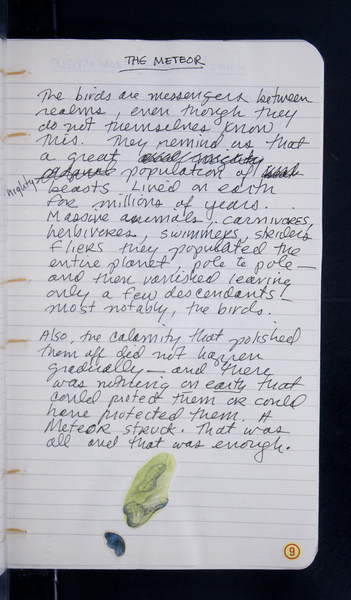 THE METEOR
The birds are messengers between
realms, even though they
do not themselves know
this. They remind us that
a great
mighty population of
beasts lived on earth
for millions of years.
Massive animals: carnivores,
herbivores, swimmers, striders
fliers they populated the
entire planet pole to pole—
and then vanished leaving
only a few descendants/
most notably, the birds.
Also, the calamity that polished
them off did not happen
gradually— and there
was nothing on earth that
could protect them or could
have protected them. A
Meteor struck. That was
all and that was enough.
9